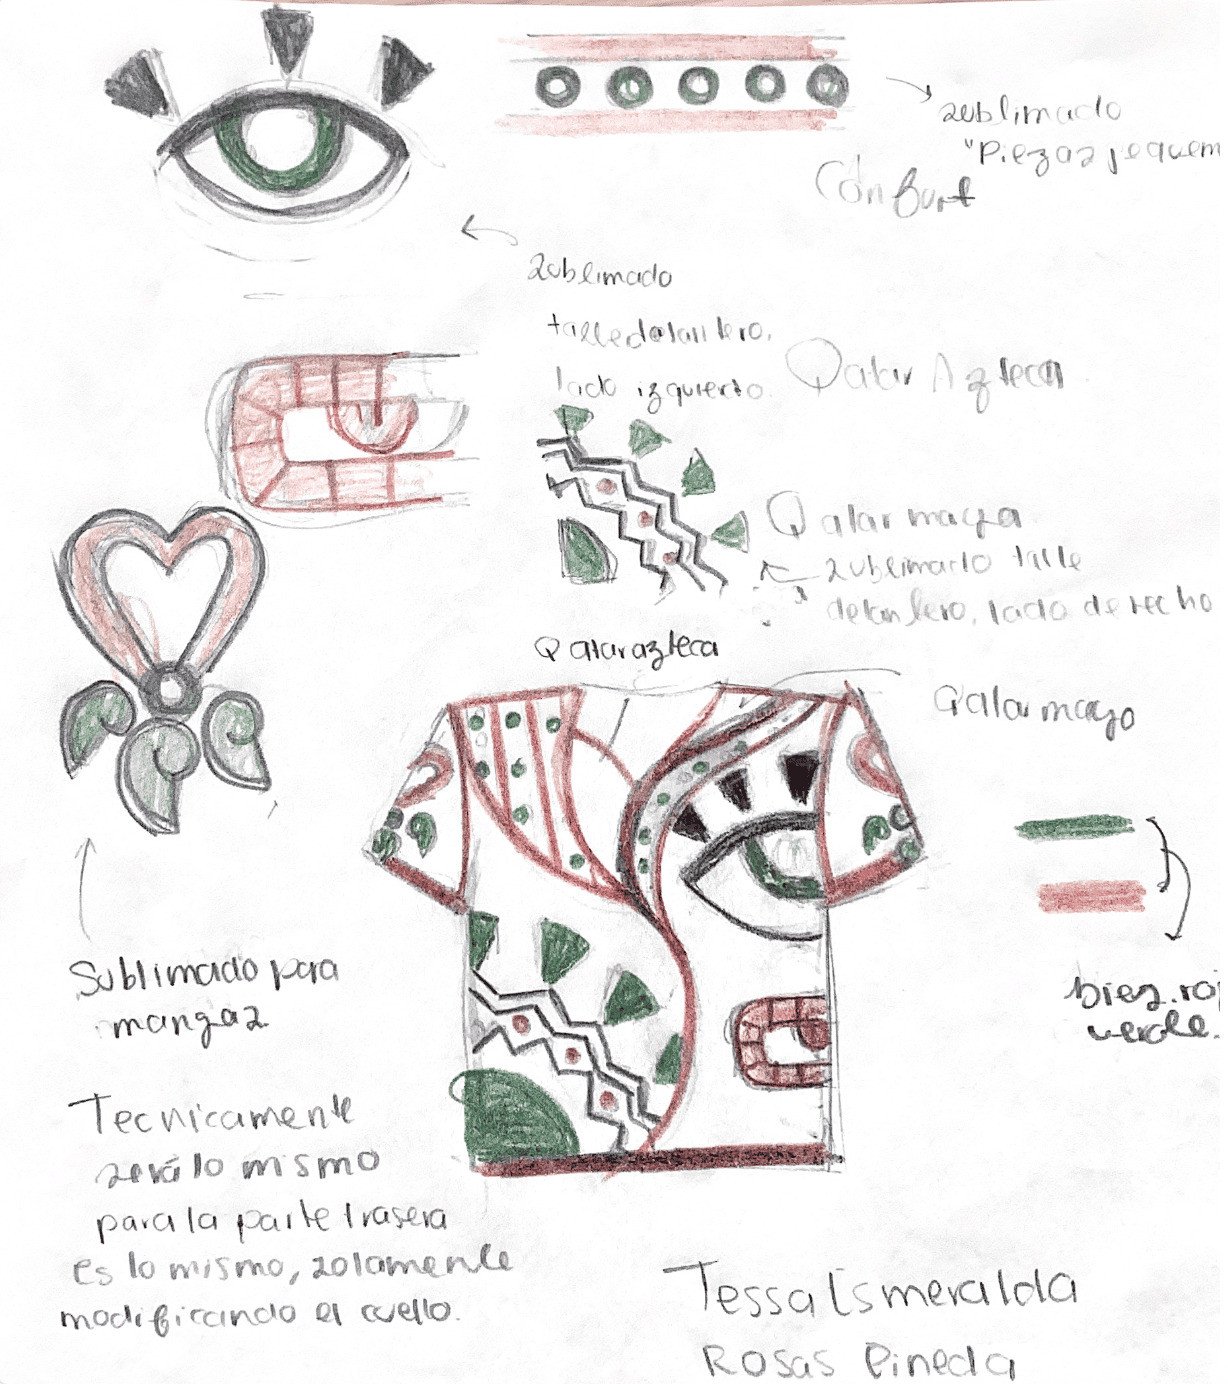 sublimado
"Piezas pequem
Confort
sublimado
talle delantero,
lado izquierdo.
Qatar Azteca
Qatar maya
sublimado talle
delantero, lado derecho
Qatar azteca
Qatar mayo
biez. roj
verde.
Sublimado para
mangas
Tecnicamente
será lo mismo
para la parte trasera
es lo mismo, solamente
modificando el cuello.
Tessa Esmeralda
Rosas Pineda